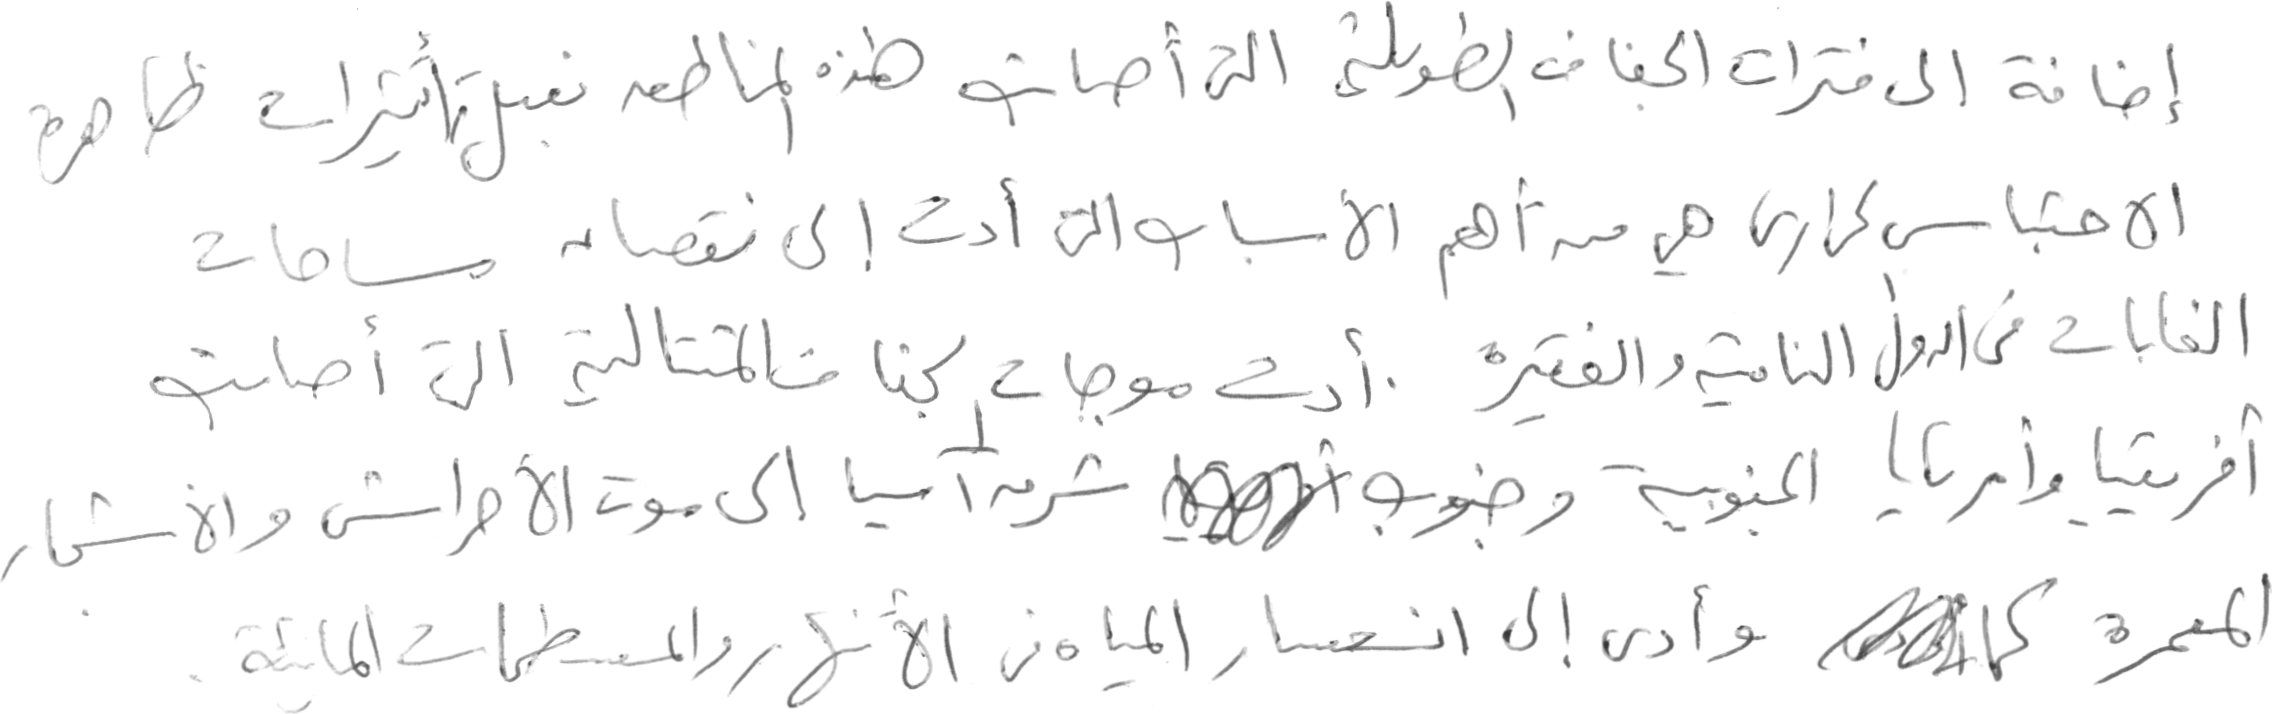 إضافة الى فترات الجفاف الطويلة التي أصابت هذه المناطق بفعل تأثيرات ظاهرة
الاحتباس الحراري هي من أهم الأسباب التي أدت إلى نقصان مساحات
الغابات في الدول النامية والفقيرة . أدت موجات الجفاف المتتالية التي أصابت
أفريقيا وأمريكا الجنوبية وجنوب شرق آسيا إلى موت الأحراش والأشجار
المعمرة كما وأدى إلى انحسار المياه في الأنهار والمسطحات المائية .